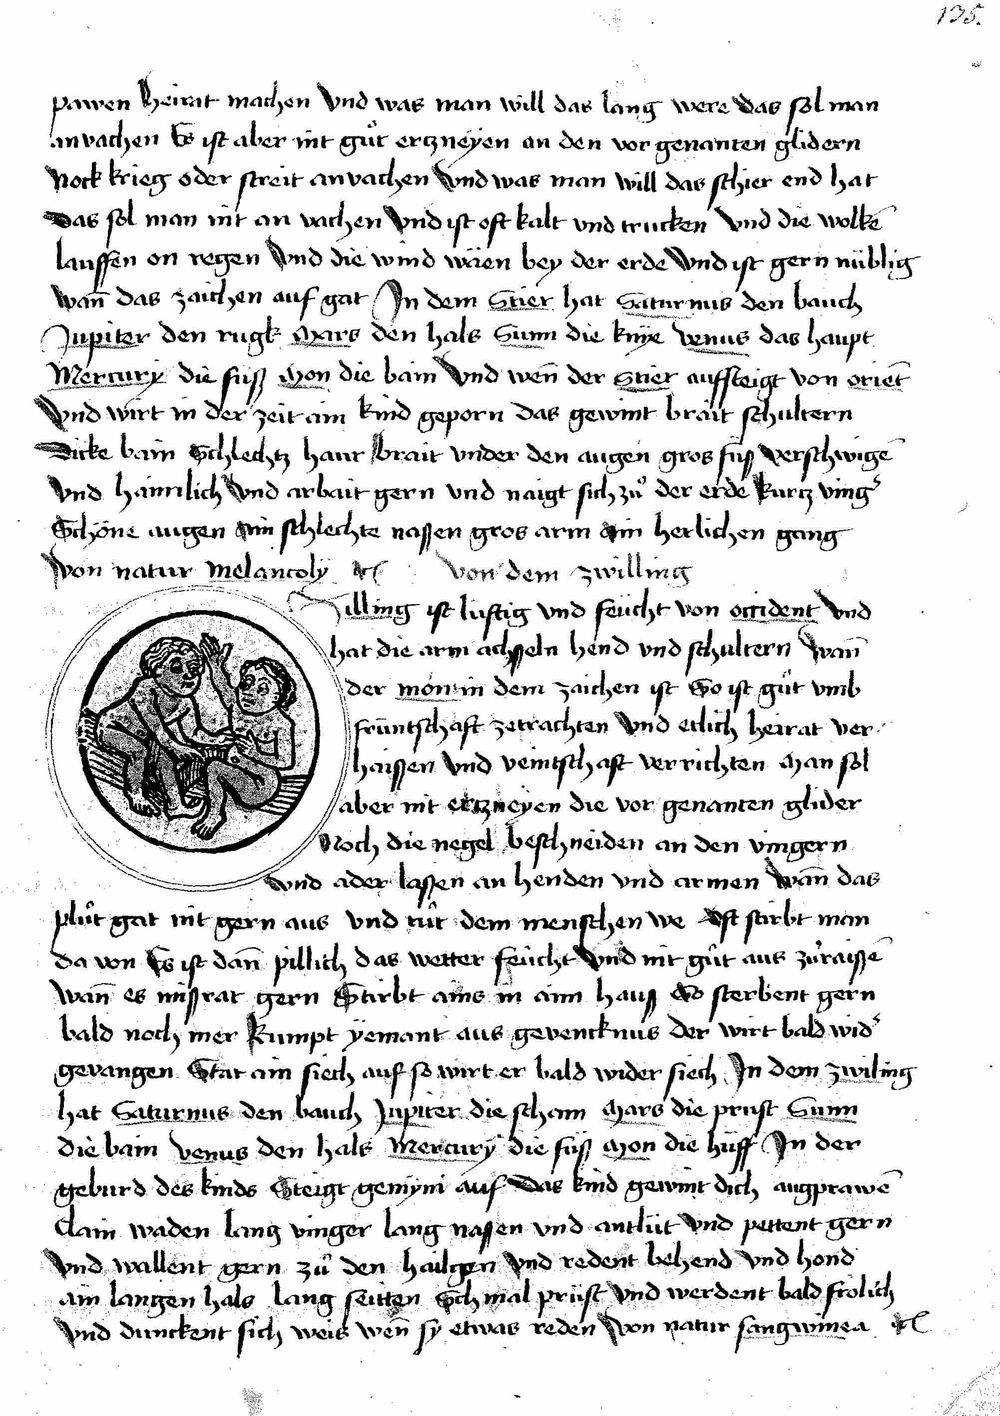 135.
pawen heirat machen vnd was man will das lang were das sol man
anvachen Es ist aber nit gůt ertzneyen an den vor genanten glidern
Noch krieg oder streit anvachen Vnd was man will das schier end hat
Das sol man nit an vachen Vnd ist oft kalt vnd trucken Vnd die wolkē
lauffen on regen Vnd die wind wäen bey der erde Vnd ist gern nüblig
wañ das zaichen auf gat In dem Stier hat Saturnus den bauch
Jupiter den rugk Mars den hals Sunn die knye Venus das haupt
Mercury die füß Mon die bain Vnd wen̄ der Stier auffsteigt von oriēt
Vnd wirt in der zeit ain kind geporn das gewint brait schultern
Dicke bain Schlechtz haur brait vnder den augen gros füß Verschwigē
vnd haimlich Vnd arbait gern vnd naigt sich zů der erde kurtz ving᷑
Schöne augen ain schlechte nassen gros arm ain herlichen gang
Von natur Melancoly von dem zwilling
Zilling ist lüftig vnd feücht von occident Vnd
hat die arm achsseln hend vnd schultern Wañ
der mon in dem zaichen ist So ist gůt vmb
früntschaft zetrachten Vnd etlich heirat ver
haissen Vnd veintschaft verrichten Man sol
aber nit ertzneyen die vor genanten glider
Noch die negel beschneiden an den vingern
Vnd ader lassen an henden vnd armen Wañ das
plůt gat nit gern aus vnd tůt dem menschen we Oft stirbt man
da von Es ist dañ pillich das wetter feücht Vnd nit gůt aus zůraissē
Wañ es missrat gern Stirbt ains in ainn hauß So sterbent gern
bald noch mer Kumpt yemant aus gevencknus der wirt bald wid᷑
gevangen Stat ain siech auf so wirt er bald wider siech In dem zwiling
hat Saturnus den bauch Jupiter die scham Mars die prust Sunn
die bain Venus den hals Mercury die füß Mon die hüff In der
geburd des kinds Steigt gemyni auf Das kind gewint dich augprawē
Clain waden lang vinger lang nassen vnd antlüt Vnd pettent gern
Vnd wallent gern zů den hailgen Vnd redent behend Vnd hond
ain langen hals lang seitten Schmal prüst Vnd werdent bald frölich
Vnd dunckent sich weis wen̄ sy etwas reden Von natur sangwinea